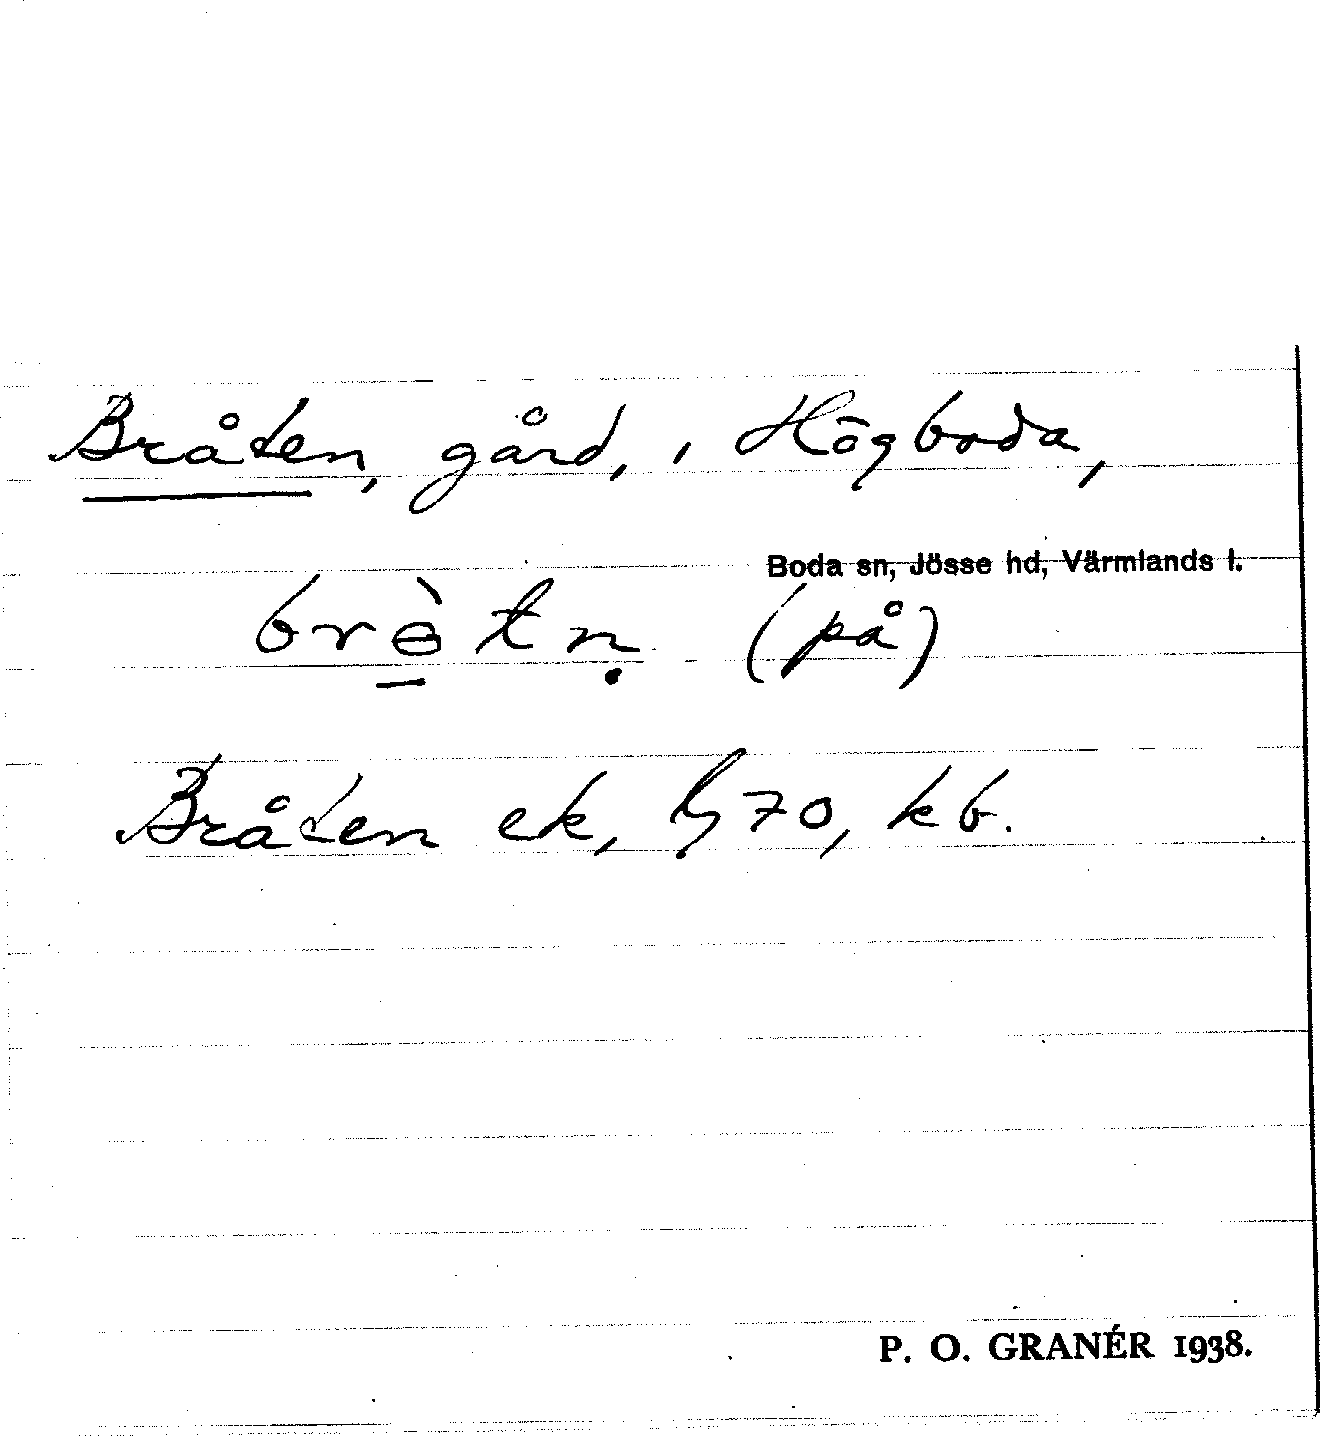 Bråten, gård, i Högboda,
Boda sn, Jösse hd, Värmlands l.
brè̱tṇ (på)
Bråten ek, 70, kb.
P. O. GRANÉR 1938.